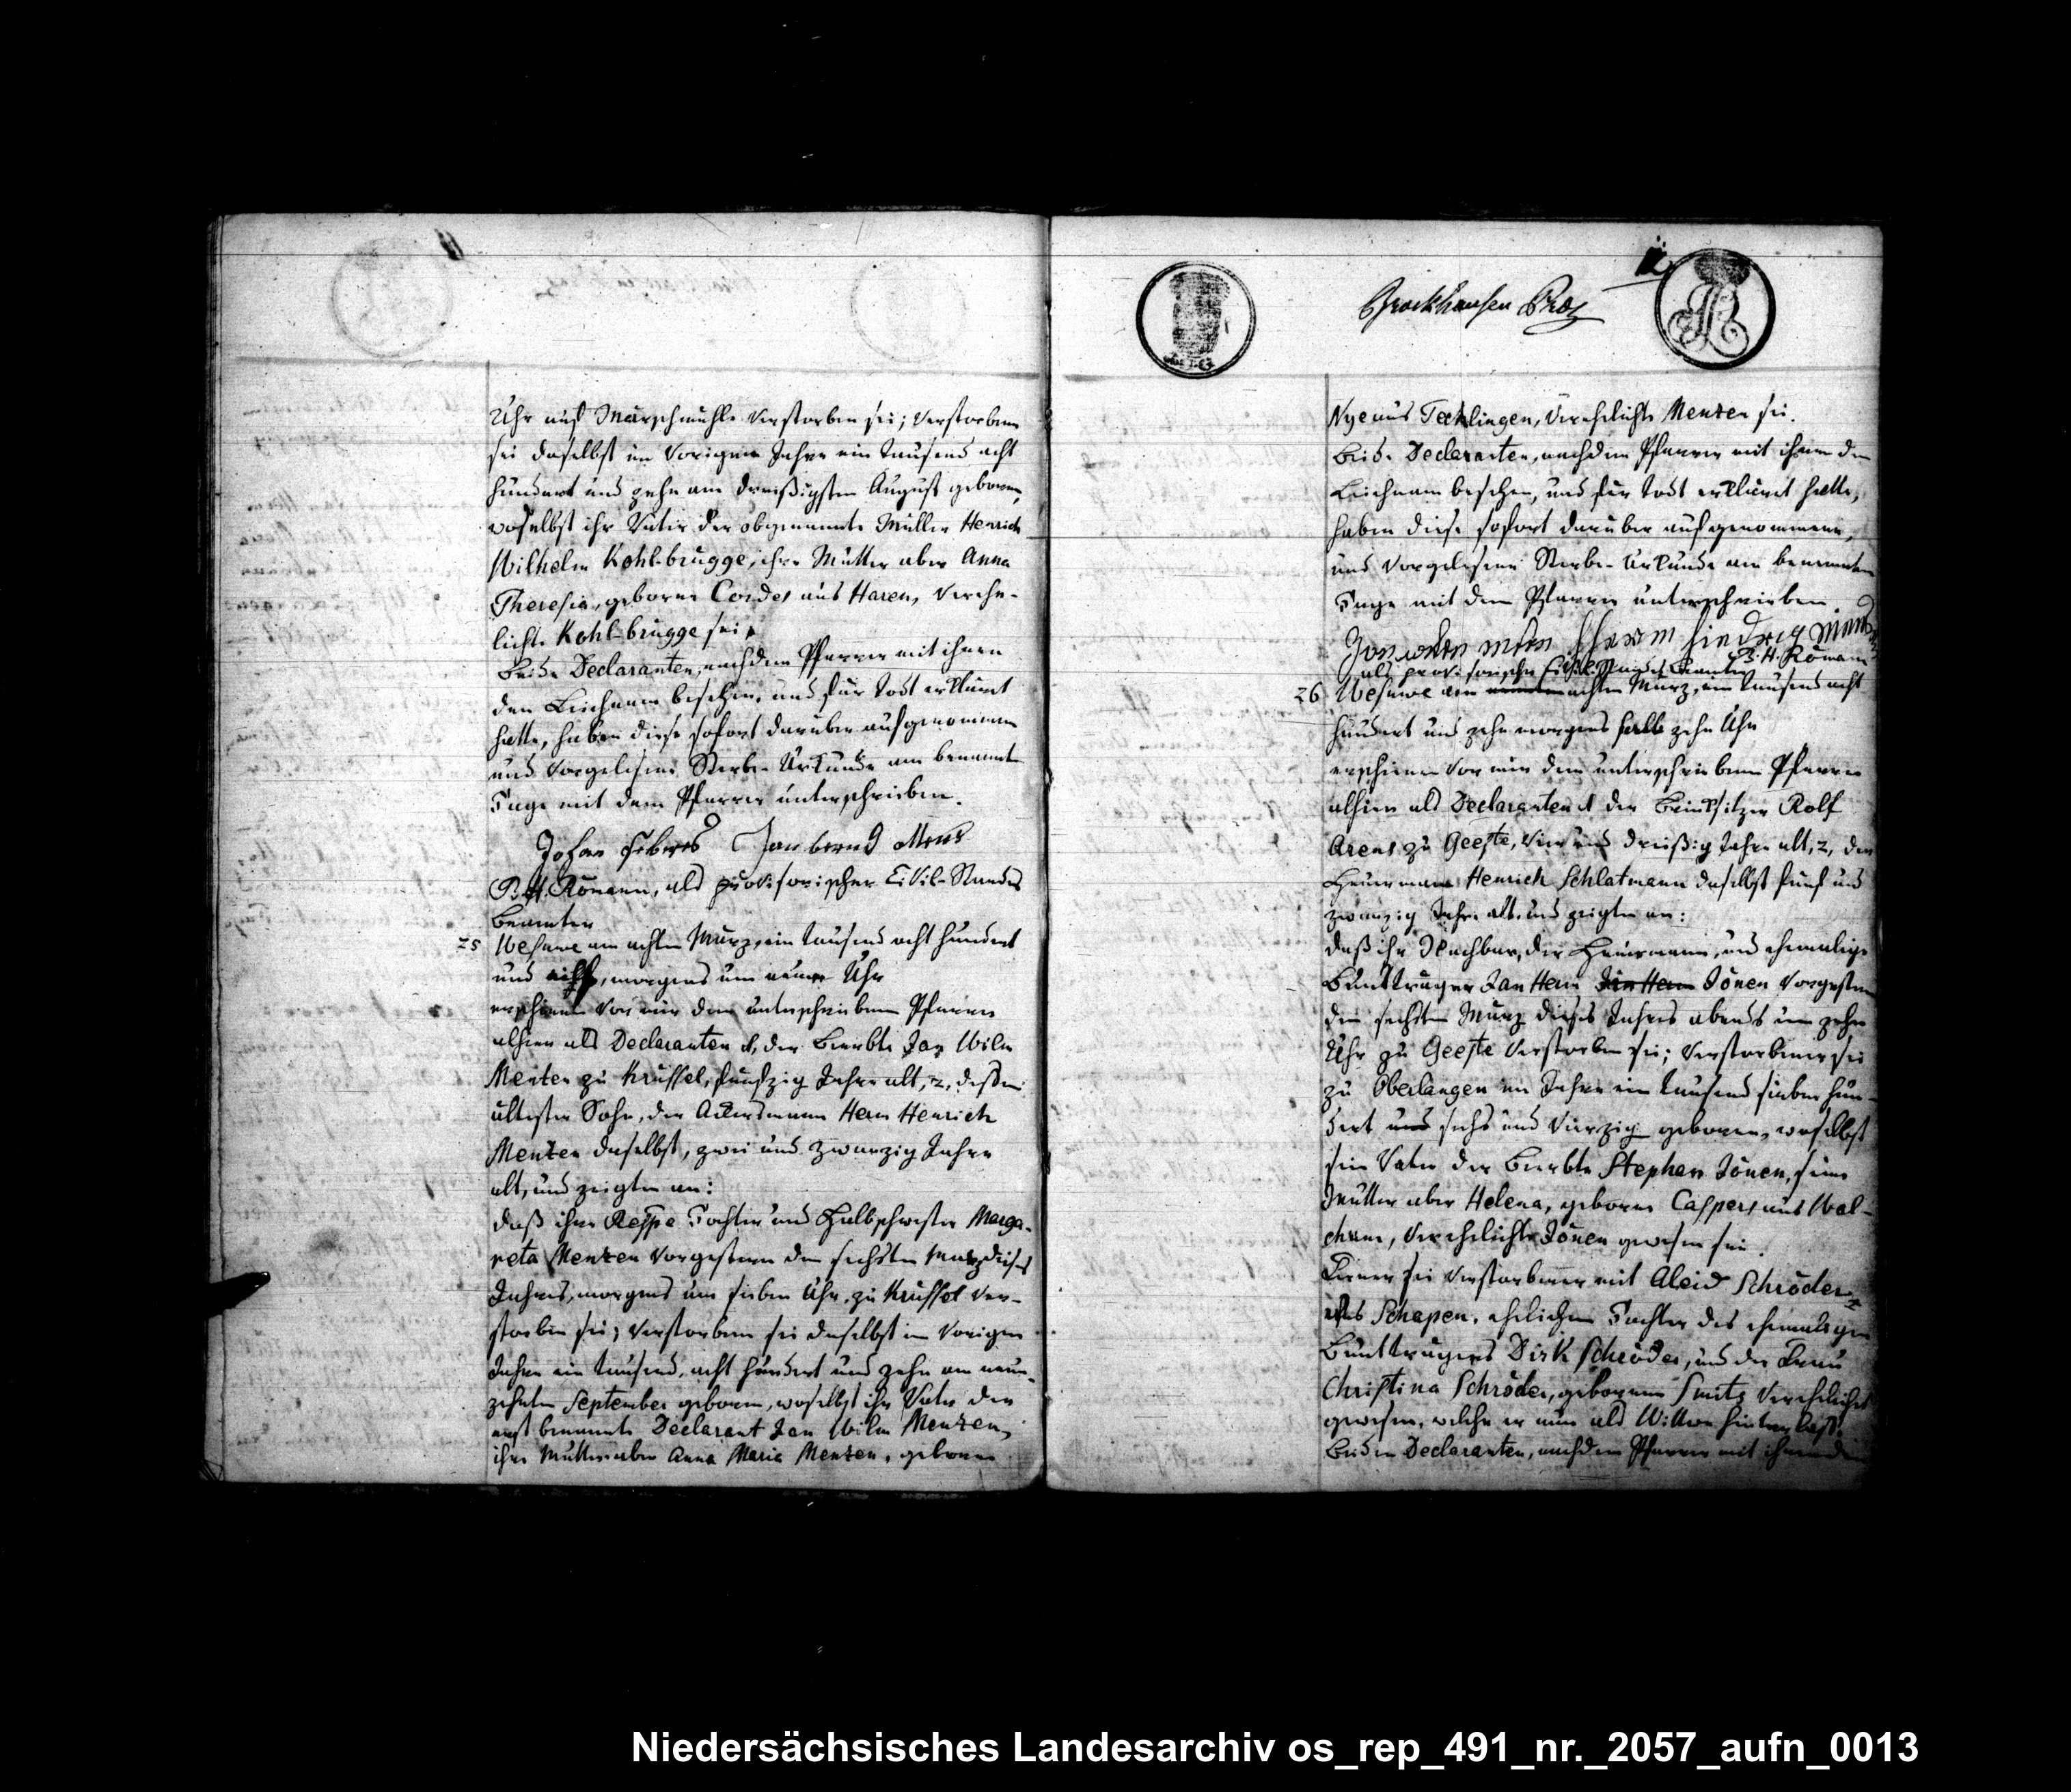 Uhr auf Marschmühle verstorben sei; Verstorbene
sei daselbst im vorigen Jahre ein tausend acht
hundert und zehn am dreißigsten August geboren,
woselbst ihr Vater der obgenannte Müller Henrich
Wilhelm Kohl-brügge, ihre Mutter aber Anna
Theresia, geborne Cordes aus Haren, verehe-
lichte Kohl-brügge sei,
Beide Declaranten, nachdem Pfarrer mit ihnen
den Leichnam besehen, und für todt erklärt
hatte, haben diese sofort darüber aufgenommene
und vorgelesene Sterbe-Urkunde am benannten
Tage mit dem Pfarrer unterschrieben.
Johan Jan bernd Mens
B. H. Römann, als provisorischer Civil-Standes
Beamter
25 Wesuwe am achten März, ein tausend acht hundert
und eilf, morgens um neun Uhr
erschienen vor mir dem unterschriebenen Pfarrer
alhier als Declaranten 1, der Beerbte Jan Wilm
Menten zu Krüssel, funfzig Jahre alt, 2, dessen
ältester Sohn, der Ackersmann Herm Henrich
Menzen daselbst, zwei und zwanzig Jahre
alt, und zeigten an:
daß ihre Tochter und Halbschwester Marga-
reta Menzen vorgestern den sechsten März dieses
Jahres, morgens um sieben Uhr, zu Krüssel ver-
storben sei; Verstorbene sei daselbst im vorigen
Jahre ein tausend, acht hundert und zehn am neun-
zehnten September geboren, woselbst ihr Vater der
erst benannte Declarant Jan Wilm Menzen,
ihre Mutter aber Anna Maria Menzen, geborne
Brockhausen
Nye aus Tecklingen, verehelichte Menzen sei.
Beide Declaranten, nachdem Pfarrer mit ihnen den
Leichnam besehen, und für todt erklärt hatte,
haben diese sofort darüber aufgenommene,
und vorgelesene Sterbe-Urkunde am benannten
Tage mit dem Pfarrer unterschrieben.
Jan hindrig
B. H. Römann
als provisorischer Civil-Standes Beamter
26 Wesuwe am achten März, ein tausend acht
hundert und zehn morgens halb zehn Uhr
erschienen vor mir dem unterschriebenen Pfarrer
alhier als Declaranten 1 der Beinsitzer Rolf
Arens zu Geeste, vier und dreißig Jahre alt, 2, der
Heuermann Henrich Schlatmann daselbst fünf und
zwanzig Jahre alt, und zeigten an:
daß ihr Nachbar, der Heuermann, und ehemalige
Bunttrager Jan Herm Jan Herm Jönen vorgestern
den sechsten März dieses Jahres abends um zehn
Uhr zu Geeste verstorben sei; Verstorbener sei
zu Oberlangen im Jahre ein tausend sieben hun-
dert und sechs und vierzig geboren, woselbst
sein Vater der Beerbte Stephan Jönen, seine
Mutter aber Helena, geborne Caspers aus Wal-
chum, verehelichte Jönen gewesen sei.
Ferner sei Verstorbener mit Aleid Schröder
aus Schapen, ehelichen Tochter des ehemaligen
Bunttragers Dirk Schröder, und der Frau
Christina Schröder, gebornen Smits verehelichet
gewesen, welche er nun als Wittwe hinterlasse.
Beiden Declaranten, nachdem Pfarrer mit ihnen den
Niedersächsisches Landesarchiv os_rep_491_nr._2057_aufn_0013